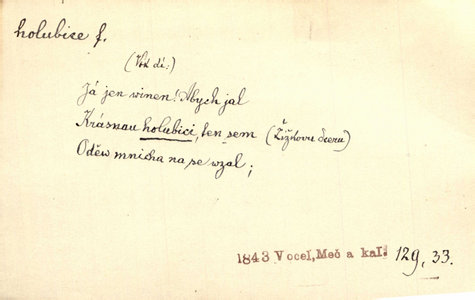 holubice f.
(Vok dí:)
Já jen winen! Abych jal
Krásnau holubici, ten sem (Žižkovu dceru)
Oděw mnicha na se wzal;
1843 Vocel, Meč a kal. 129, 33.